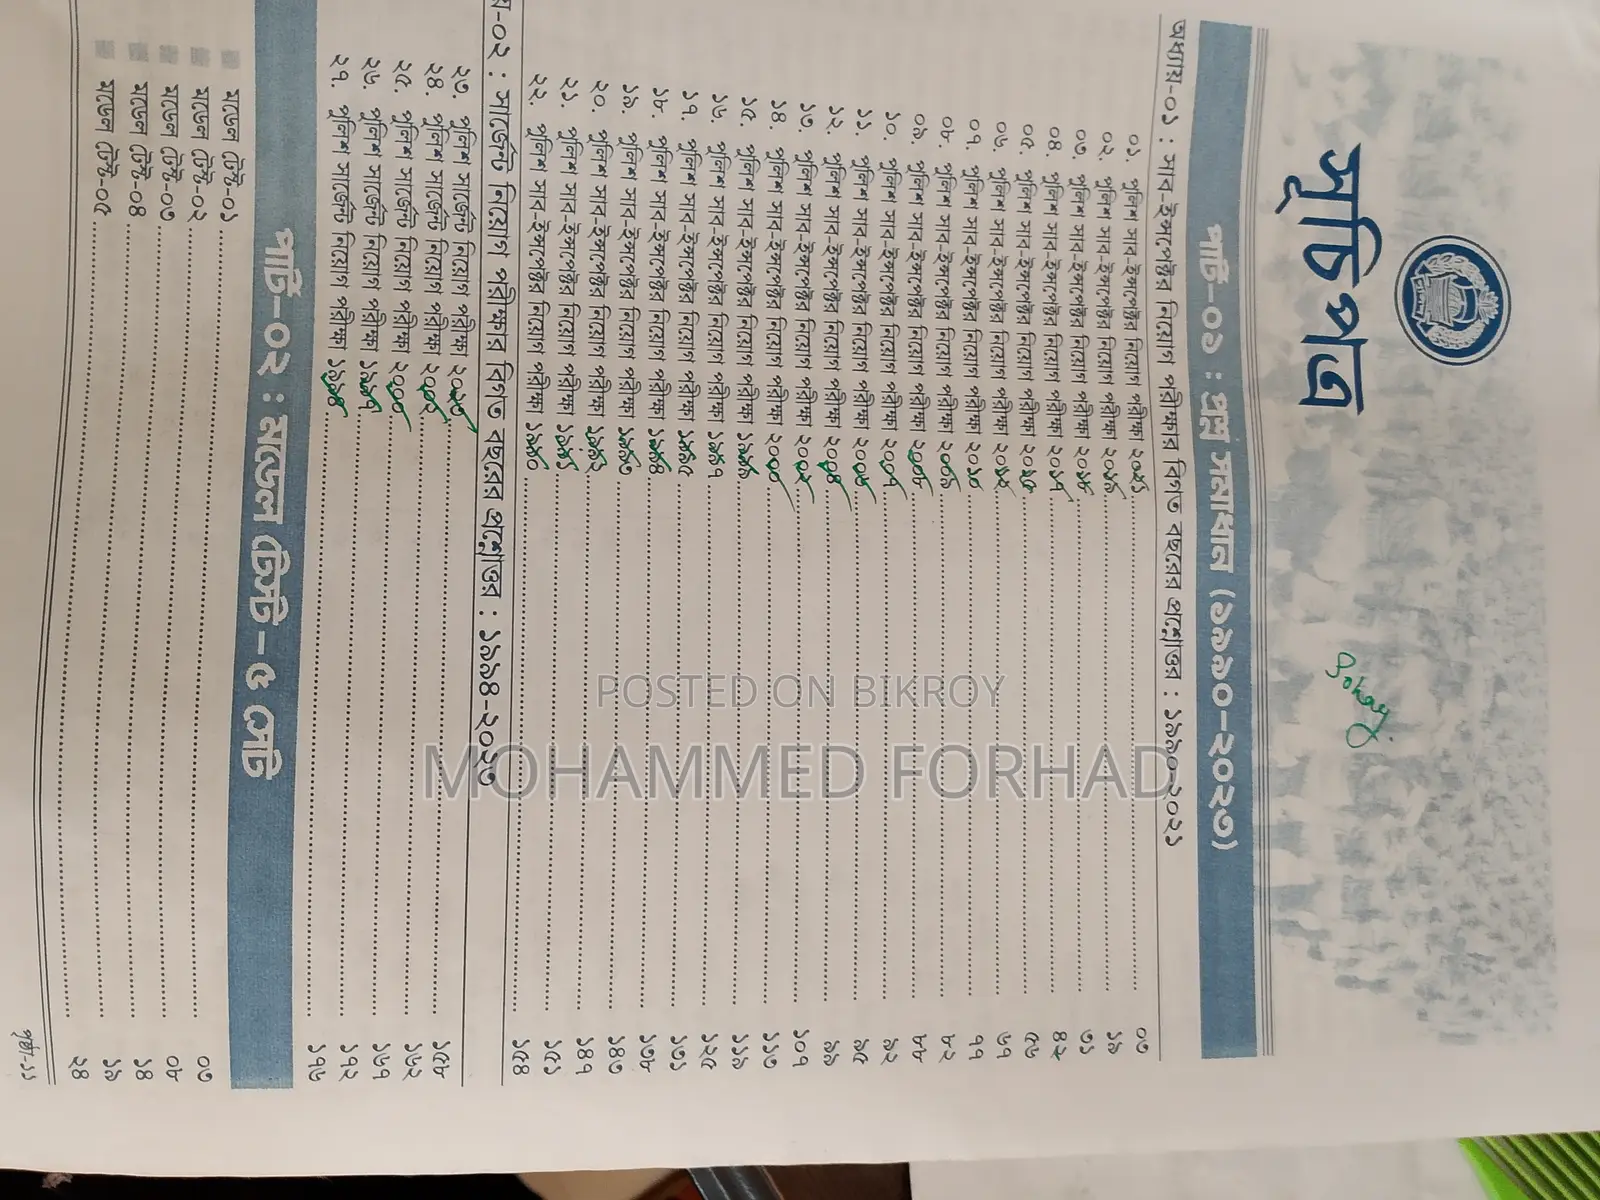 সূচিপত্র
Sohag
পার্ট-০১ : প্রশ্ন সমাধান (১৯৯০-২০২৩)
অধ্যায়-০১ : সাব-ইন্সপেক্টর নিয়োগ পরীক্ষার বিগত বছরের প্রশ্নোত্তর : ১৯৯০-২০২১
০১. পুলিশ সাব-ইন্সপেক্টর নিয়োগ পরীক্ষা ২০২১ ০৩
০২. পুলিশ সাব-ইন্সপেক্টর নিয়োগ পরীক্ষা ২০১৯ ১৯
০৩. পুলিশ সাব-ইন্সপেক্টর নিয়োগ পরীক্ষা ২০১৮ ৩১
০৪. পুলিশ সাব-ইন্সপেক্টর নিয়োগ পরীক্ষা ২০১৭ ৪২
০৫. পুলিশ সাব-ইন্সপেক্টর নিয়োগ পরীক্ষা ৫৬
০৬. পুলিশ সাব-ইন্সপেক্টর নিয়োগ পরীক্ষা ২০১২ ৬৭
০৭. পুলিশ সাব-ইন্সপেক্টর নিয়োগ পরীক্ষা ২০১০ ৭৭
০৮. পুলিশ সাব-ইন্সপেক্টর নিয়োগ পরীক্ষা ২০০৯ ৮২
০৯. পুলিশ সাব-ইন্সপেক্টর নিয়োগ পরীক্ষা ২০০৮ ৮৮
১০. পুলিশ সাব-ইন্সপেক্টর নিয়োগ পরীক্ষা ২০০৭ ৯২
১১. পুলিশ সাব-ইন্সপেক্টর নিয়োগ পরীক্ষা ২০০৬ ৯৫
১২. পুলিশ সাব-ইন্সপেক্টর নিয়োগ পরীক্ষা ২০০৪ ৯৯
১৩. পুলিশ সাব-ইন্সপেক্টর নিয়োগ পরীক্ষা ২০০২ ১০৭
১৪. পুলিশ সাব-ইন্সপেক্টর নিয়োগ পরীক্ষা ২০০০ ১১৩
১৫. পুলিশ সাব-ইন্সপেক্টর নিয়োগ পরীক্ষা ১৯৯৯ ১১৯
১৬. পুলিশ সাব-ইন্সপেক্টর নিয়োগ পরীক্ষা ১৯৯৭ ১২৫
১৭. পুলিশ সাব-ইন্সপেক্টর নিয়োগ পরীক্ষা ১৯৯৫ ১৩১
১৮. পুলিশ সাব-ইন্সপেক্টর নিয়োগ পরীক্ষা ১৯৯৪ ১৩৮
১৯. পুলিশ সাব-ইন্সপেক্টর নিয়োগ পরীক্ষা ১৯৯৩ ১৪৩
২০. পুলিশ সাব-ইন্সপেক্টর নিয়োগ পরীক্ষা ১৯৯২ ১৪৭
২১. পুলিশ সাব-ইন্সপেক্টর নিয়োগ পরীক্ষা ১৯৯১ ১৫১
২২. পুলিশ সাব-ইন্সপেক্টর নিয়োগ পরীক্ষা ১৯৯০ ১৫৪
য়-০২ : সার্জেন্ট নিয়োগ পরীক্ষার বিগত বছরের প্রশ্নোত্তর : ১৯৯৪-২০২৩
২৩. পুলিশ সার্জেন্ট নিয়োগ পরীক্ষা ২০২৩ ১৫৮
২৪. পুলিশ সার্জেন্ট নিয়োগ পরীক্ষা ২০০২ ১৬২
২৫. পুলিশ সার্জেন্ট নিয়োগ পরীক্ষা ২০০০ ১৬৭
২৬. পুলিশ সার্জেন্ট নিয়োগ পরীক্ষা ১৯৯৭ ১৭২
২৭. পুলিশ সার্জেন্ট নিয়োগ পরীক্ষা ১৯৯৪ ১৭৬
পার্ট-০২ : মডেল টেস্ট - ৫ সেট
মডেল টেস্ট-০১ ০৩
মডেল টেস্ট-০২ ০৮
মডেল টেস্ট-০৩ ১৪
মডেল টেস্ট-০৪ ১৯
মডেল টেস্ট-০৫ ২৪
পৃষ্ঠা-১১
POSTED ON BIKROY
MOHAMMED FORHAD